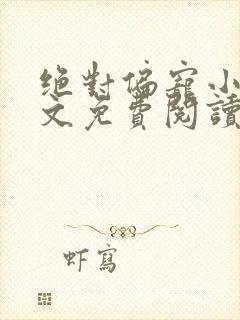 絕對偏寵小
文免費閱讀
虾寫